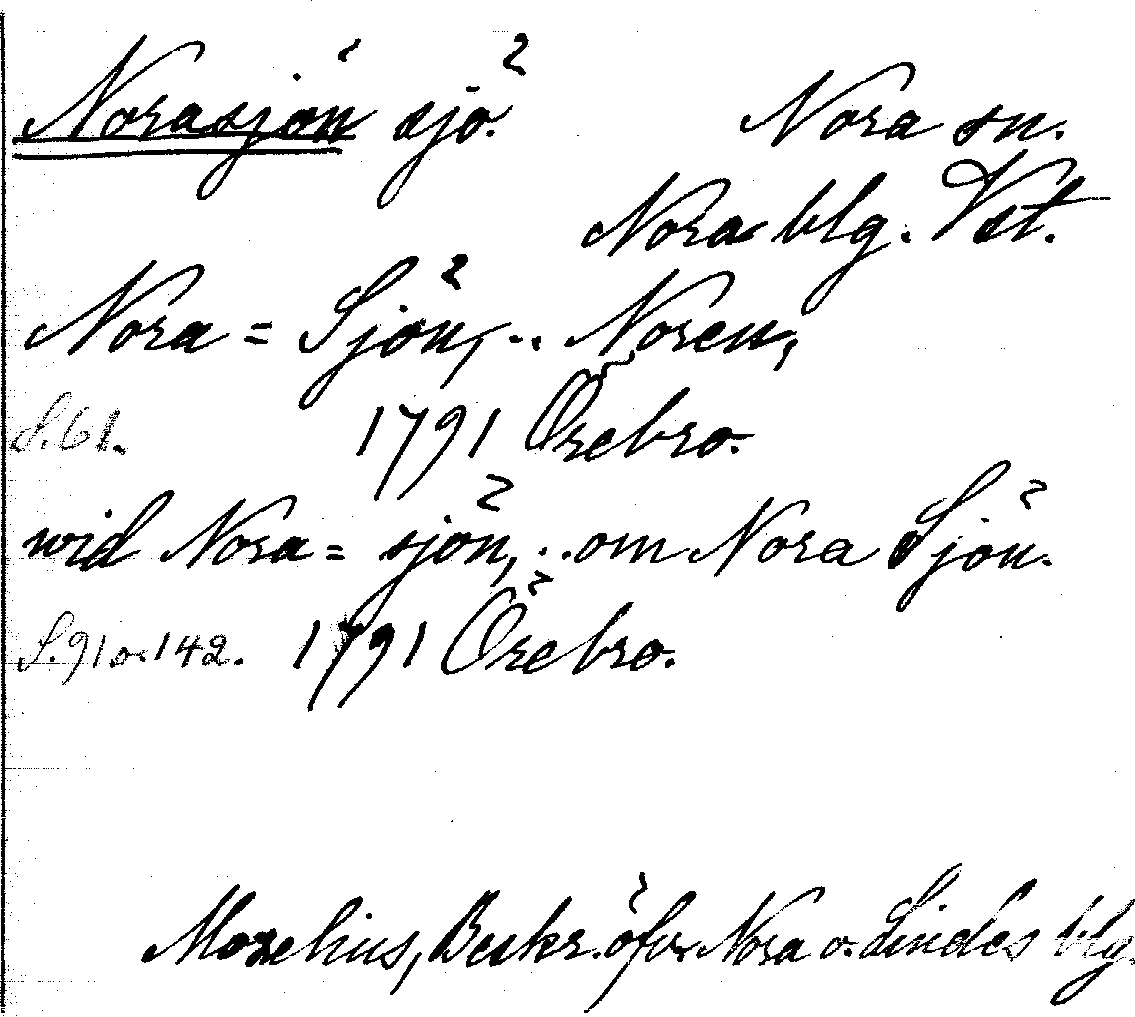 Norasjön sjö. Nora sn.
Nora blg. Vst.
Nora = Sjön, .. Noren,
S. 61. 1791 Örebro.
wid Nora = sjön, .. om Nora Sjön.
S. 91 o. 142. 1791 Örebro.
Morelius, Beskr. öfv. Nora o. Lindes blg.